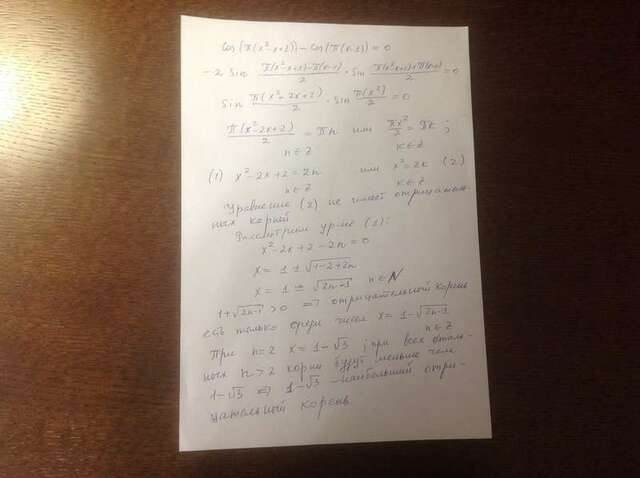 cos(π(x²-x+2)) - cos(π(x-2)) = 0
-2 sin π(x²-x+2)-π(x-2)/2 · sin π(x²-x+2)+π(x-2)/2 = 0
sin π(x²-2x+2)/2 · sin π(x²)/2 = 0
π(x²-2x+2)/2 = πn или πx²/2 = πk ;
n∈Z k∈Z
(1) x²-2x+2=2n или x²=2k (2)
n∈Z k∈Z
Уравнение (2) не имеет отрицатель-
ных корней
Рассмотрим ур-ние (1):
x²-2x+2-2n=0
x = 1 ± √1-2+2n
x = 1 ± √2n-1 n∈N
1+√2n-1 >0 ⇒ отрицательный корень
есть только среди чисел x = 1-√2n-1
n∈Z
При n=2 x = 1-√3 ; при всех осталь-
ных n>2 корни будут меньше чем
1-√3 ⇒ 1-√3 - наибольший отри-
цательный корень.